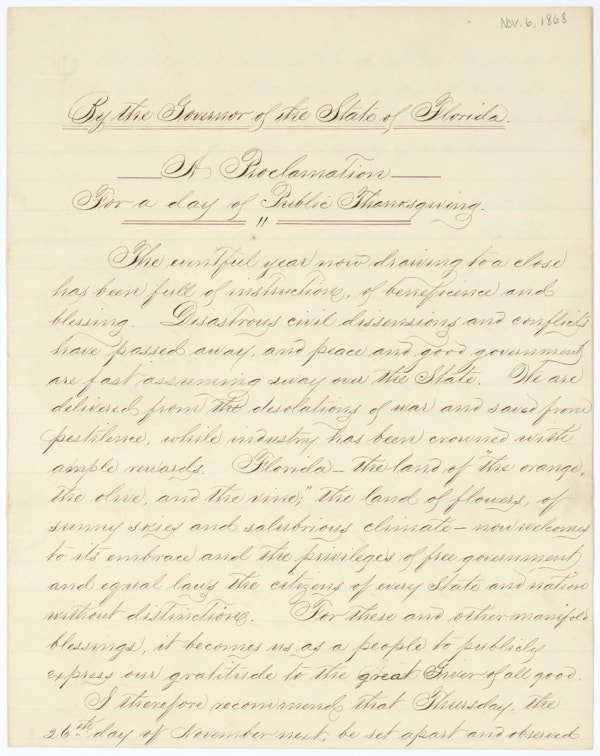 Nov. 6, 1868
By the Governor of the State of Florida.
A Proclamation
For a day of Public Thanksgiving.
"
The eventful year now drawing to a close
has been full of instruction, of beneficence and
blessing. Disastrous civil dissensions and conflicts
have passed away, and peace and good government
are fast assuming sway over the State. We are
delivered from the desolations of war and saved from
pestilence, while industry has been crowned with
ample rewards. Florida - the land of "the orange,
the olive, and the vine;" the land of flowers, of
sunny skies and salubrious climate - now welcomes
to its embrace and the privileges of free government
and equal laws the citizens of every State and nation
without distinction. For these and other manifold
blessings, it becomes us as a people to publicly
express our gratitude to the great Giver of all good.
I therefore recommend that Thursday, the
26th day of November next, be set apart and observed